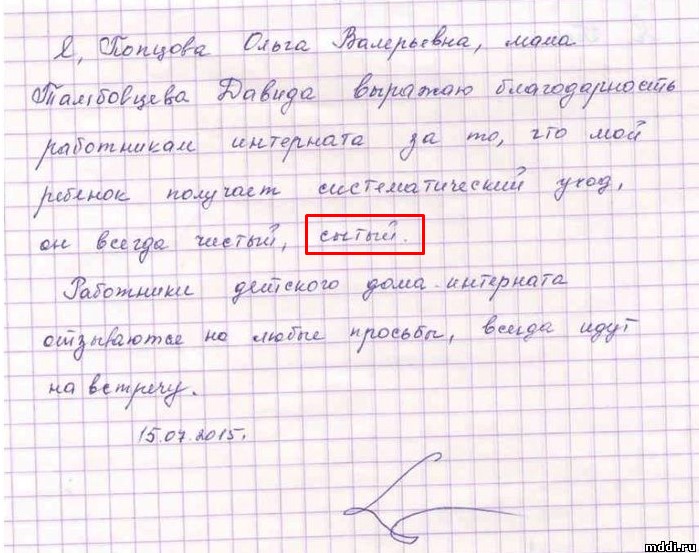 Я, Копцова Ольга Валерьевна, мама
Тамбовцева Давида выражаю благодарность
работникам интерната за то, что мой
ребёнок получает систематический уход,
он всегда чистый, сытый.
Работники детского дома-интерната
отзываются на любые просьбы, всегда идут
на встречу.
15.07.2015.
mddi.ru